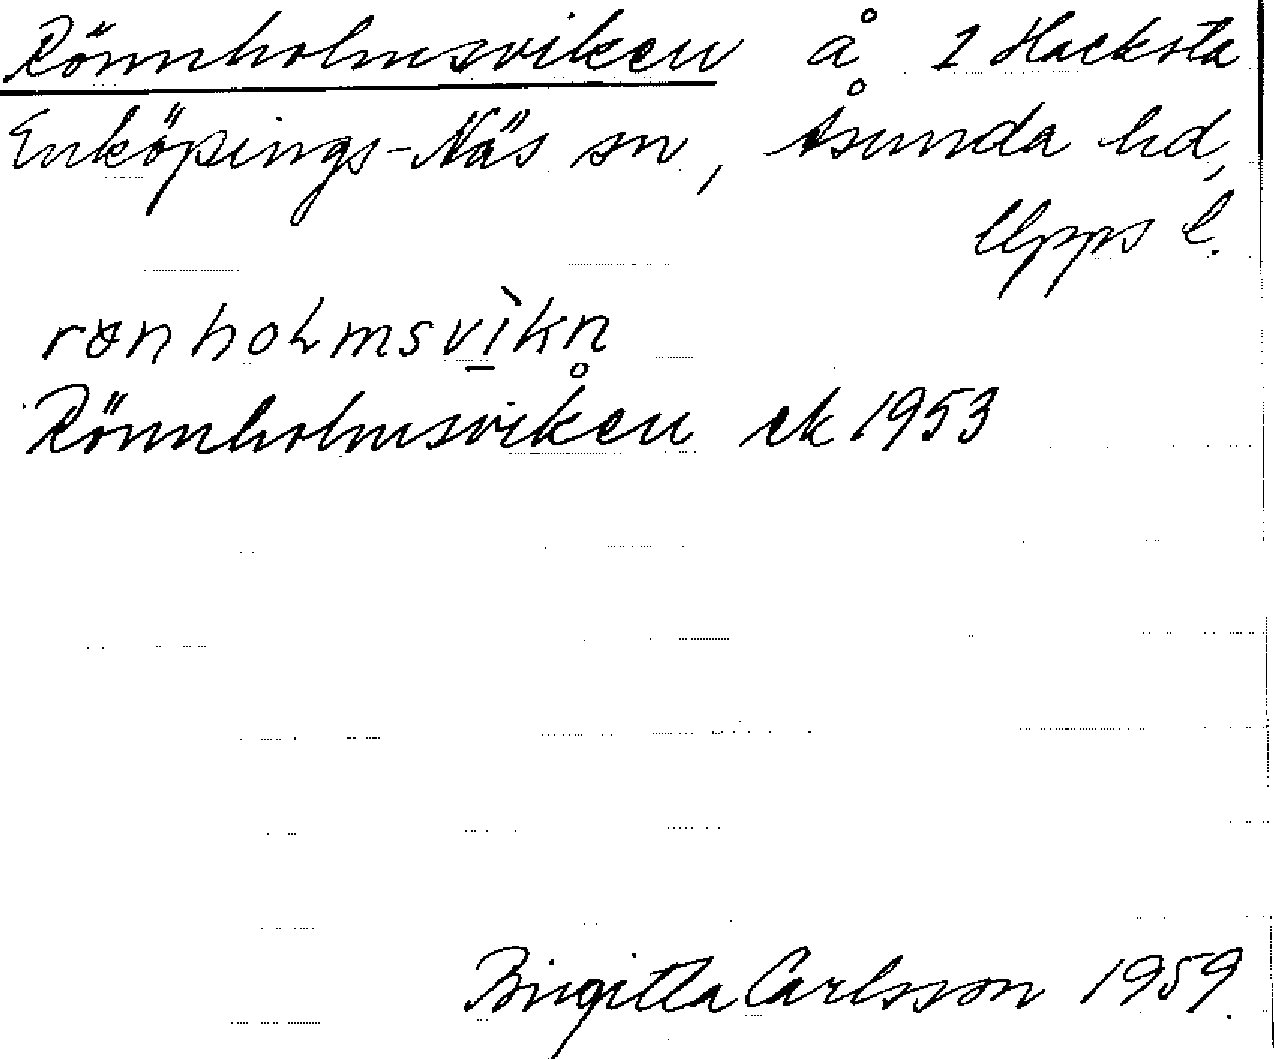 Rönnholmsviken å 1 Hacksta
Enköpings-Näs sn, Åsunda hd,
Upps l.
rɵnholmsvìkn̥
Rönnholmsviken ek 1953
Birgitta Carlsson 1959.